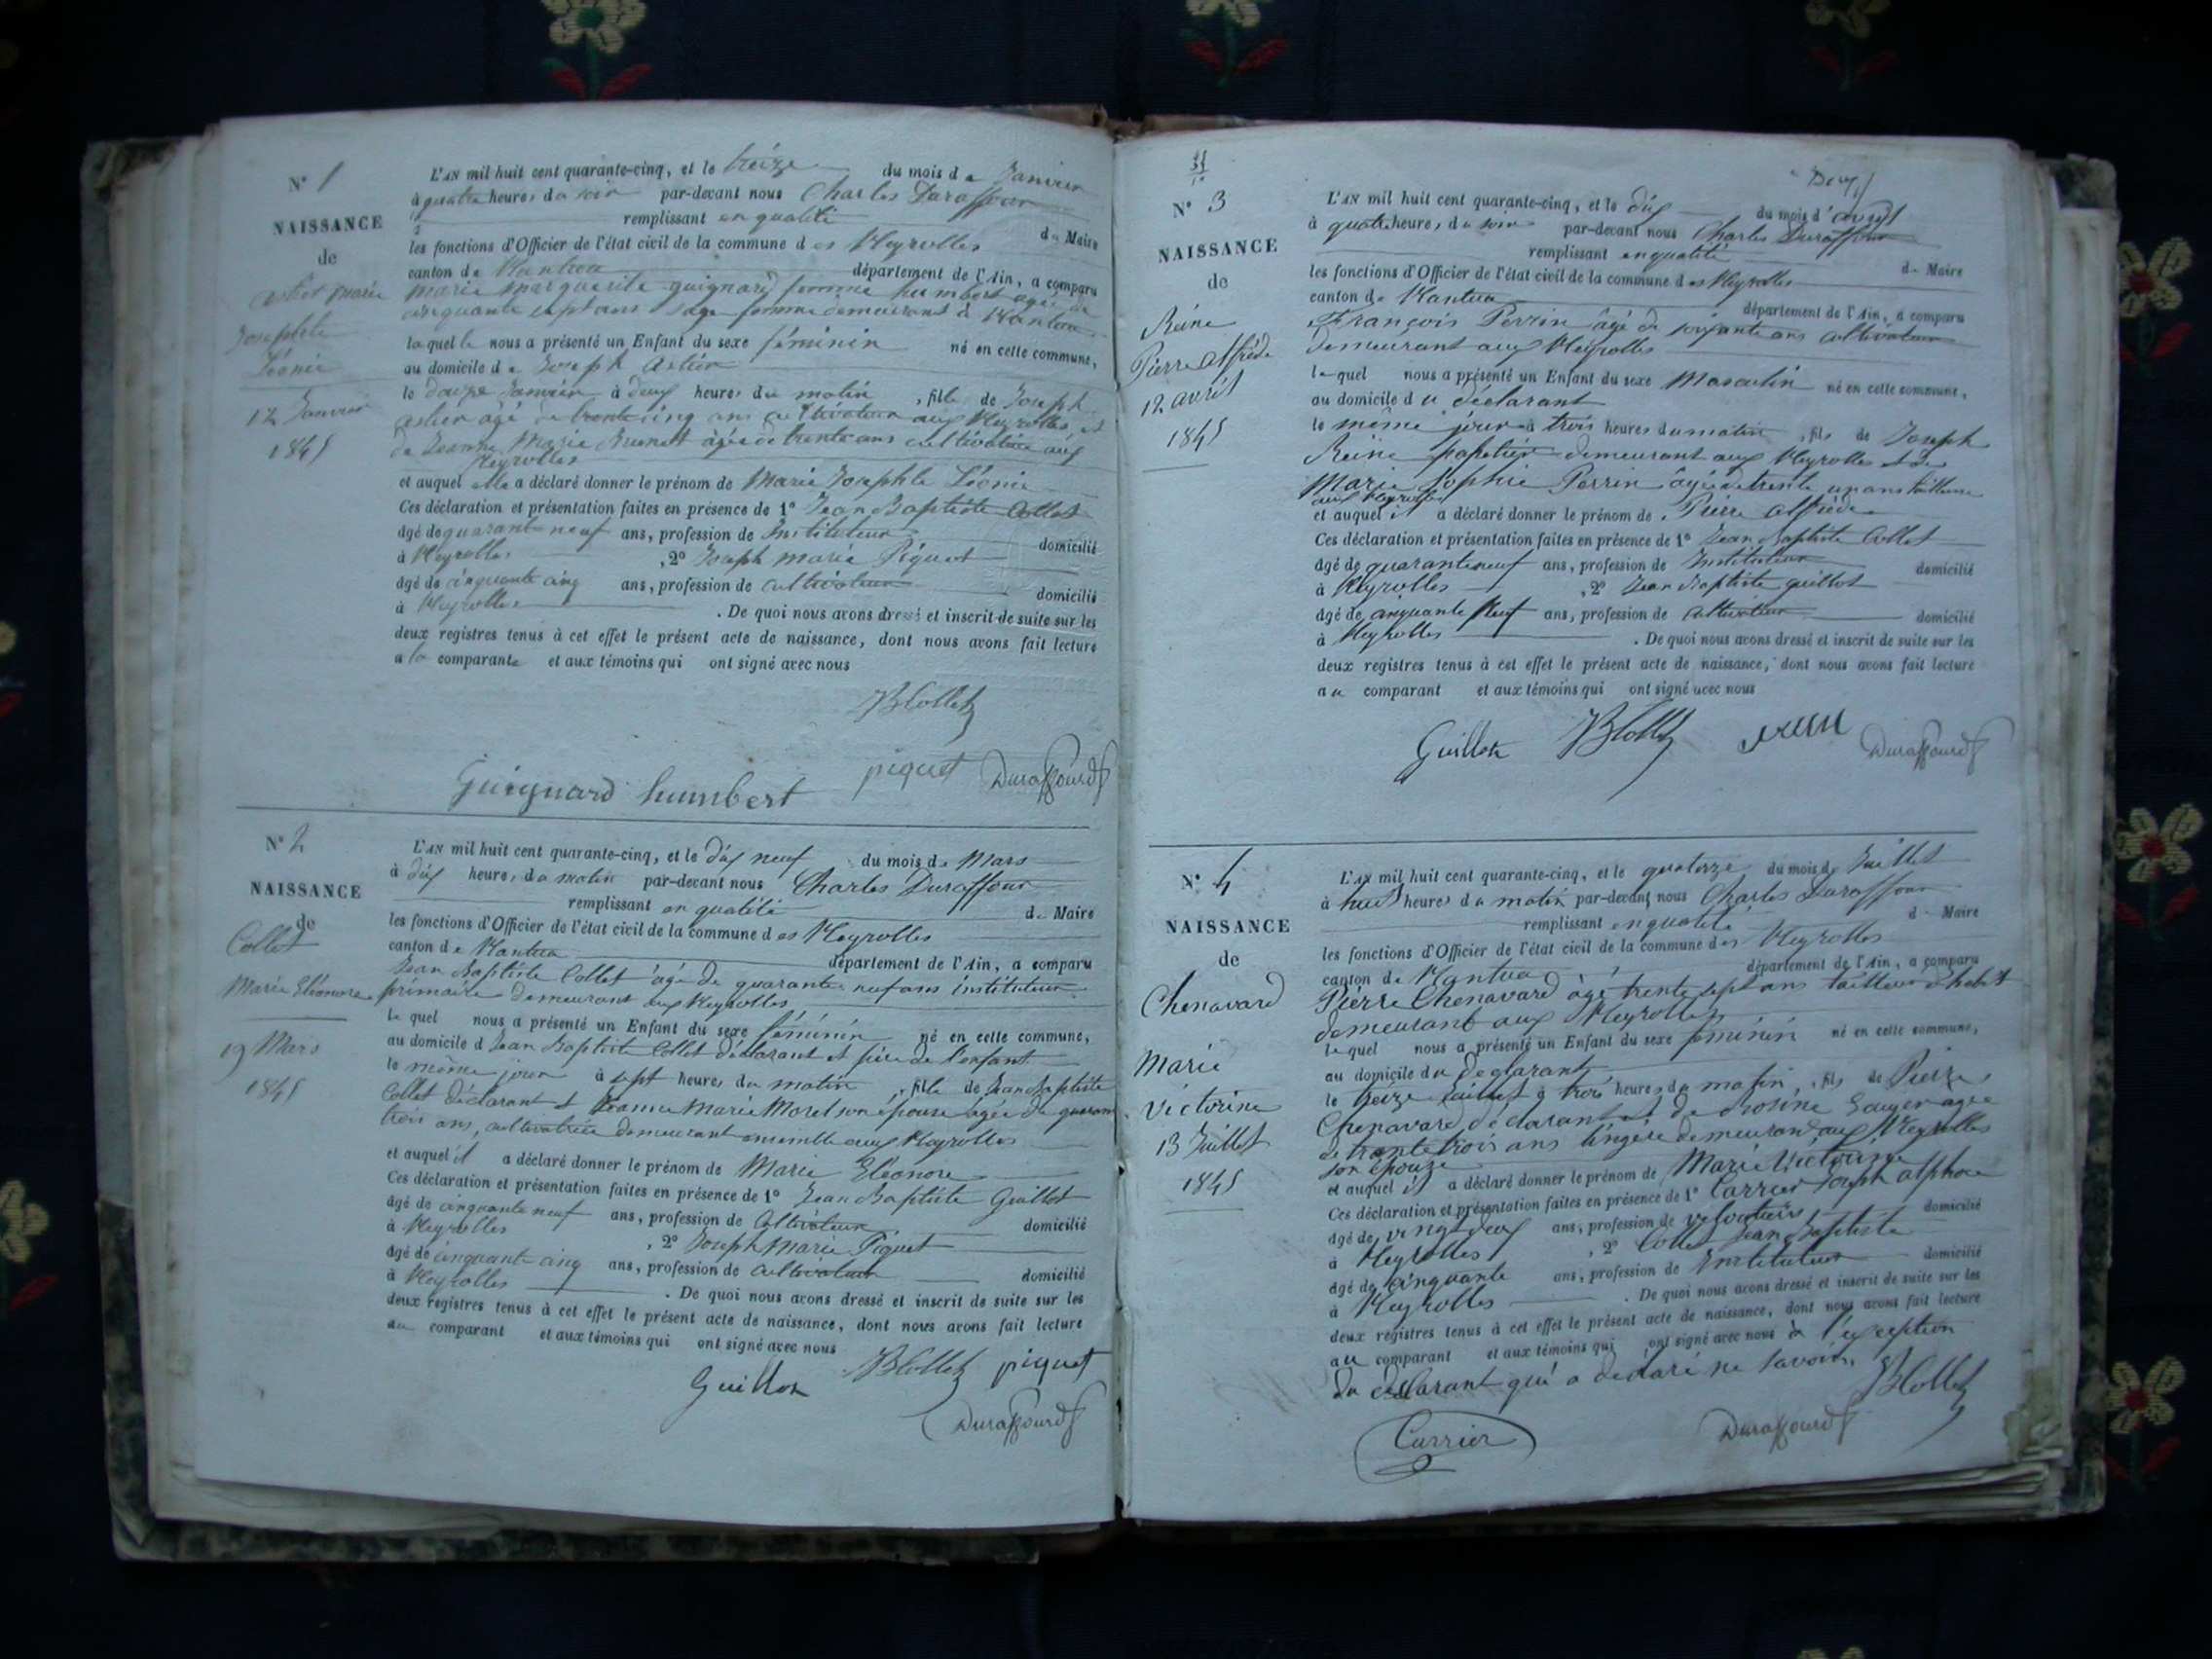 N° 1
NAISSANCE
de
Astier Marie
Josephte
Léonie
12 Janvier
1845
L'AN mil huit cent quarante-cinq, et le treize du mois de Janvier
à quatre heures du soir par-devant nous Charles Duraffour
remplissant en qualité de Maire
les fonctions d'Officier de l'état civil de la commune des Neyrolles
canton de Nantua département de l'Ain, a comparu
Marie Marguerite guignard femme humbert agée de
cinquante sept ans sage femme demeurant à Nantua
laquelle nous a présenté un Enfant du sexe féminin né en cette commune,
au domicile de Joseph Astier
le douze Janvier à deux heures du matin, fille de Joseph
astier âgé de trente cinq ans cultivateur aux Neyrolles et
de Jeanne Marie Brunet âgée de trente ans cultivatrice aux
Neyrolles
et auquel elle a déclaré donner le prénom de Marie Josephte Léonie
Ces déclaration et présentation faites en présence de 1° Jean Baptiste Collet
âgé de quarante neuf ans, profession de Instituteur domicilié
à Neyrolles, 2° Joseph marie Piquet
âgé de cinquante cinq ans, profession de cultivateur domicilié
à Neyrolles. De quoi nous avons dressé et inscrit de suite sur les
deux registres tenus à cet effet le présent acte de naissance, dont nous avons fait lecture
a la comparante et aux témoins qui ont signé avec nous
JBCollet
Guignard humbert piquet Duraffourd
N° 2
NAISSANCE
de
Collet
Marie Eléonore
19 Mars
1845
L'AN mil huit cent quarante-cinq, et le dix neuf du mois de Mars
à dix heures du matin par-devant nous Charles Duraffour
remplissant en qualité de Maire
les fonctions d'Officier de l'état civil de la commune des Neyrolles
canton de Nantua département de l'Ain, a comparu
Jean Baptiste Collet âgé de quarante neuf ans instituteur
primaire demeurant aux Neyrolles
lequel nous a présenté un Enfant du sexe féminin né en cette commune,
au domicile d Jean Baptiste Collet déclarant et père de l'enfant
le même jour à sept heures du matin, fille de Jean Baptiste
Collet déclarant et Jeanne Marie Morel son épouse agée de quarante
trois ans, cultivatrice demeurant ensemble aux Neyrolles
et auquel il a déclaré donner le prénom de Marie Eléonore
Ces déclaration et présentation faites en présence de 1° Jean Baptiste Guillot
âgé de cinquante neuf ans, profession de Cultivateur domicilié
à Neyrolles, 2° Joseph Marie Piquet
âgé de cinquante cinq ans, profession de cultivateur domicilié
à Neyrolles. De quoi nous avons dressé et inscrit de suite sur les
deux registres tenus à cet effet le présent acte de naissance, dont nous avons fait lecture
au comparant et aux témoins qui ont signé avec nous
Guillot JBCollet piquet
Duraffourd
Deux
N° 3
NAISSANCE
de
Reine
Pierre Alfrède
12 avril
1845
L'AN mil huit cent quarante-cinq, et le dix du mois d'avril
à quatre heures du soir par-devant nous Charles Duraffour
remplissant en qualité de Maire
les fonctions d'Officier de l'état civil de la commune des Neyrolles
canton de Nantua département de l'Ain, a comparu
François Perrin âgé de soixante ans cultivateur
demeurant aux Neyrolles
lequel nous a présenté un Enfant du sexe Masculin né en cette commune,
au domicile du déclarant
le même jour à trois heures du matin, fils de Joseph
Reine papetier demeurant aux Neyrolles et de
Marie Sophie Perrin âgée de trente un ans tailleuse
aux Neyrolles
et auquel il a déclaré donner le prénom de Pierre Alfrède
Ces déclaration et présentation faites en présence de 1° Jean Baptiste Collet
âgé de quarante neuf ans, profession de Instituteur domicilié
à Neyrolles, 2° Jean Baptiste guillot
âgé de cinquante Neuf ans, profession de cultivateur domicilié
à Neyrolles. De quoi nous avons dressé et inscrit de suite sur les
deux registres tenus à cet effet le présent acte de naissance, dont nous avons fait lecture
au comparant et aux témoins qui ont signé avec nous
Guillot JBCollet Duraffourd
N° 4
NAISSANCE
de
Chenavard
Marie
Victorine
13 Juillet
1845
L'AN mil huit cent quarante-cinq, et le quatorze du mois de Juillet
à huit heures du matin par-devant nous Charles Duraffour
remplissant en qualité de Maire
les fonctions d'Officier de l'état civil de la commune des Neyrolles
canton de Nantua département de l'Ain, a comparu
Pierre Chenavard âgé trente sept ans tailleur d'habit
demeurant aux Neyrolles
lequel nous a présenté un Enfant du sexe féminin né en cette commune,
au domicile du déclarant
le treize Juillet à trois heures du matin, fils de Pierre
Chenavard déclarant et de Rosine agée
de trente trois ans lingère demeurant aux Neyrolles
son épouse
et auquel il a déclaré donner le prénom de Marie Victorine
Ces déclaration et présentation faites en présence de 1° Carrier Joseph alphonse
âgé de vingt deux ans, profession de domicilié
à Neyrolles, 2° Collet Jean Baptiste
âgé de cinquante ans, profession de Instituteur domicilié
à Neyrolles. De quoi nous avons dressé et inscrit de suite sur les
deux registres tenus à cet effet le présent acte de naissance, dont nous avons fait lecture
au comparant et aux témoins qui ont signé avec nous à l'exception
du déclarant qui a déclaré ne savoir. JBCollet
Carrier Duraffourd